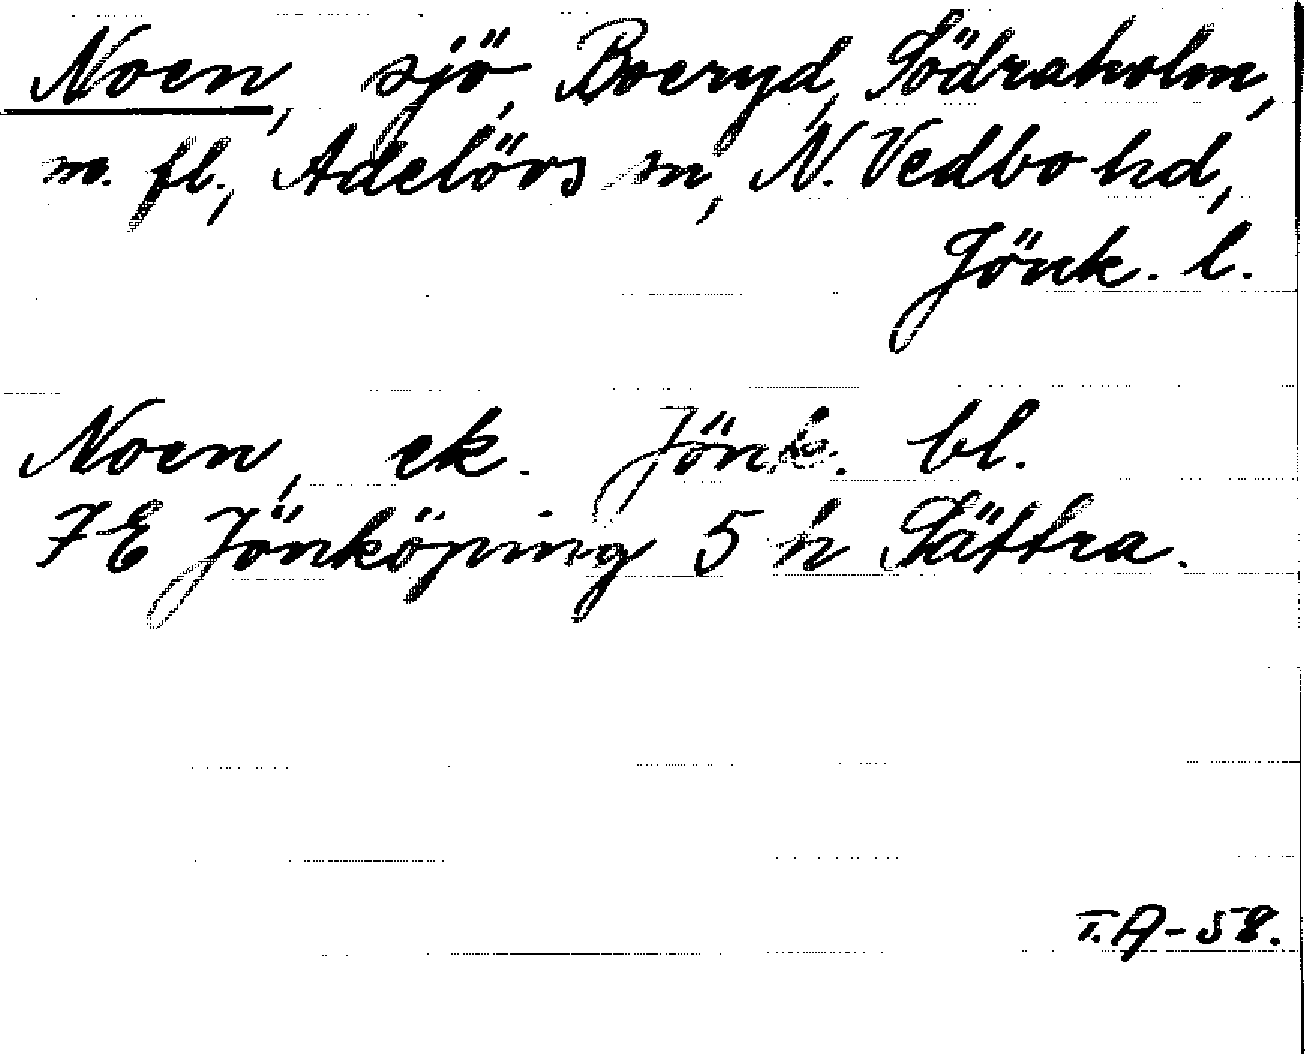 Noen, sjö, Boeryd, Södraholm,
m. fl., Adelövs sn, N. Vedbo hd,
Jönk. l.
Noen, ek. Jönk. bl.
7 E Jönköping 5 h Sättra.
T.A-58.